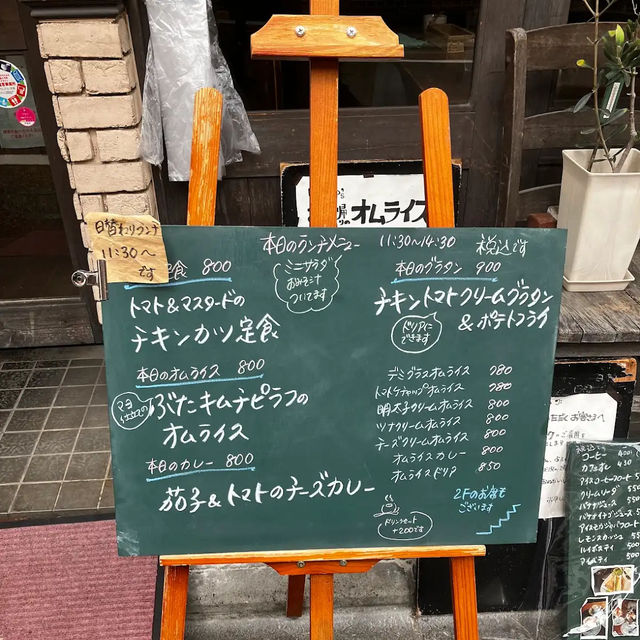 日替わりランチ
11:30〜
です
オムライス
本日のランチメニュー 11:30〜14:30 税込です
定食 800
ミニサラダ
おみそ汁
ついてます
トマト&マスタードの
チキンカツ定食
本日のオムライス 800
ぶたキムチピラフの
オムライス
本日のカレー 800
茄子&トマトのチーズカレー
本日のグラタン 900
チキントマトクリームグラタン
&ポテトフライ
ドリアに
できます
デミグラスオムライス 780
トマトケチャップオムライス 780
明太子クリームオムライス 900
ツナクリームオムライス 800
チーズクリームオムライス 800
オムライスカレー 800
オムライスドリア 850
ドリンクセット
+200です
2Fのお席も
ございます
お客さまへ
コーヒー 400
カフェオレ 430
アイスコーヒーフロート
クリームソーダ 550
バナナジュース
レモンスカッシュ
ルイボスティ